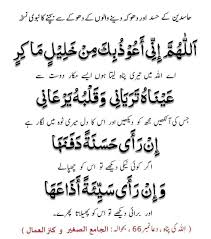 حاسدین کے حسد اور دھوکہ دینے والوں کے دھوکے سے بچنے کا نبوی نسخہ
اَللّٰهُمَّ اِنِّیْ اَعُوْذُبِكَ مِنْ خَلِیْلٍ مَّاكِرٍ
اے اللہ میں تیری پناہ لیتا ہوں ایسے مکار دوست سے
عَیْنَاهُ تَرَیَانِیْ وَقَلْبُهٗ یَرْعَانِیْ
جس کی آنکھیں مجھے دیکھیں اور اس کا دل میری ٹوہ میں لگا رہے
اِنْ رَاٰی حَسَنَةً دَفَنَهَا
اگر کوئی نیکی دیکھے تو اس کو چھپالے
وَاِنْ رَاٰی سَیِّئَةً اَذَاعَهَا
اور برائی دیکھے تو اس کو پھیلاتا پھرے۔
( اللہ کی پناہ، دعا نمبر 66، بحوالہ: الجامع الصغیر و کنز العمال )